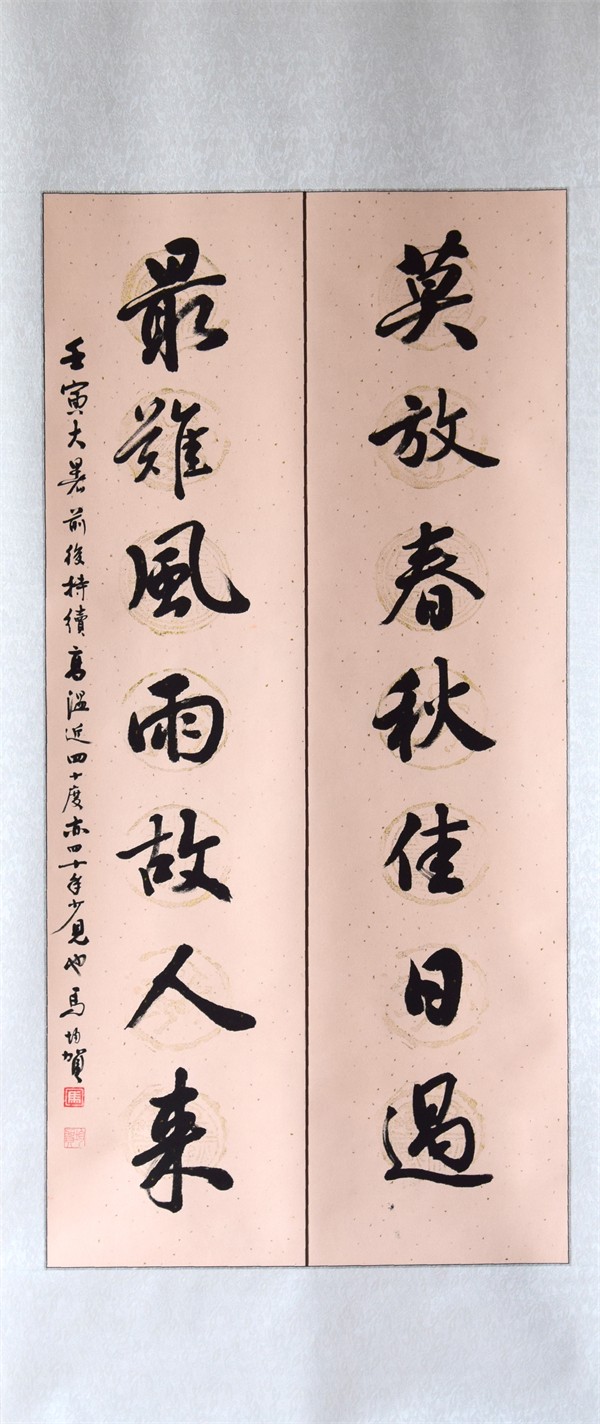 莫放春秋佳日過
最難風雨故人来
壬寅大暑前後持續高温近四十度亦四十年少見也 馬均賀